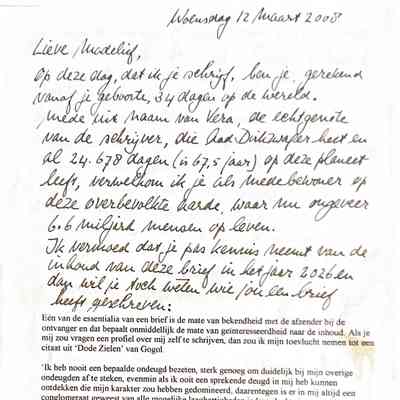 Woensdag 12 Maart 2008
Lieve Madelief,
Op deze dag, dat ik je schrijf, ben je, gerekend
vanaf je geboorte, 34 dagen op de wereld.
Mede uit naam van Vera, de echtgenote
van de schrijver, die Aad Dirkzwager heet en
al 24.678 dagen (is 67,5 jaar) op deze planeet
leeft, verwelkom ik je als medebewoner op
deze overbevolkte aarde, waar nu ongeveer
6.6 miljard mensen op leven.
Ik vermoed dat je pas kennis neemt van de
inhoud van deze brief in het jaar 2026 en
dan wil je toch weten wie jou een brief
heeft geschreven:
Eén van de essentialia van een brief is de mate van bekendheid met de afzender bij de
ontvanger en dat bepaalt onmiddellijk de mate van geïnteresseerdheid naar de inhoud. Als je
mij zou vragen een profiel over mij zelf te schrijven, dan zou ik mijn toevlucht nemen tot een
citaat uit 'Dode Zielen' van Gogol.
'Ik heb nooit een bepaalde ondeugd bezeten, sterk genoeg om duidelijk bij mijn overige
ondeugden af te steken, evenmin als ik ooit een sprekende deugd in mij heb kunnen
ontdekken die mijn karakter zou hebben gedomineerd, daarentegen is er in mij altijd een
conglomeraat geweest van alle mogelijke